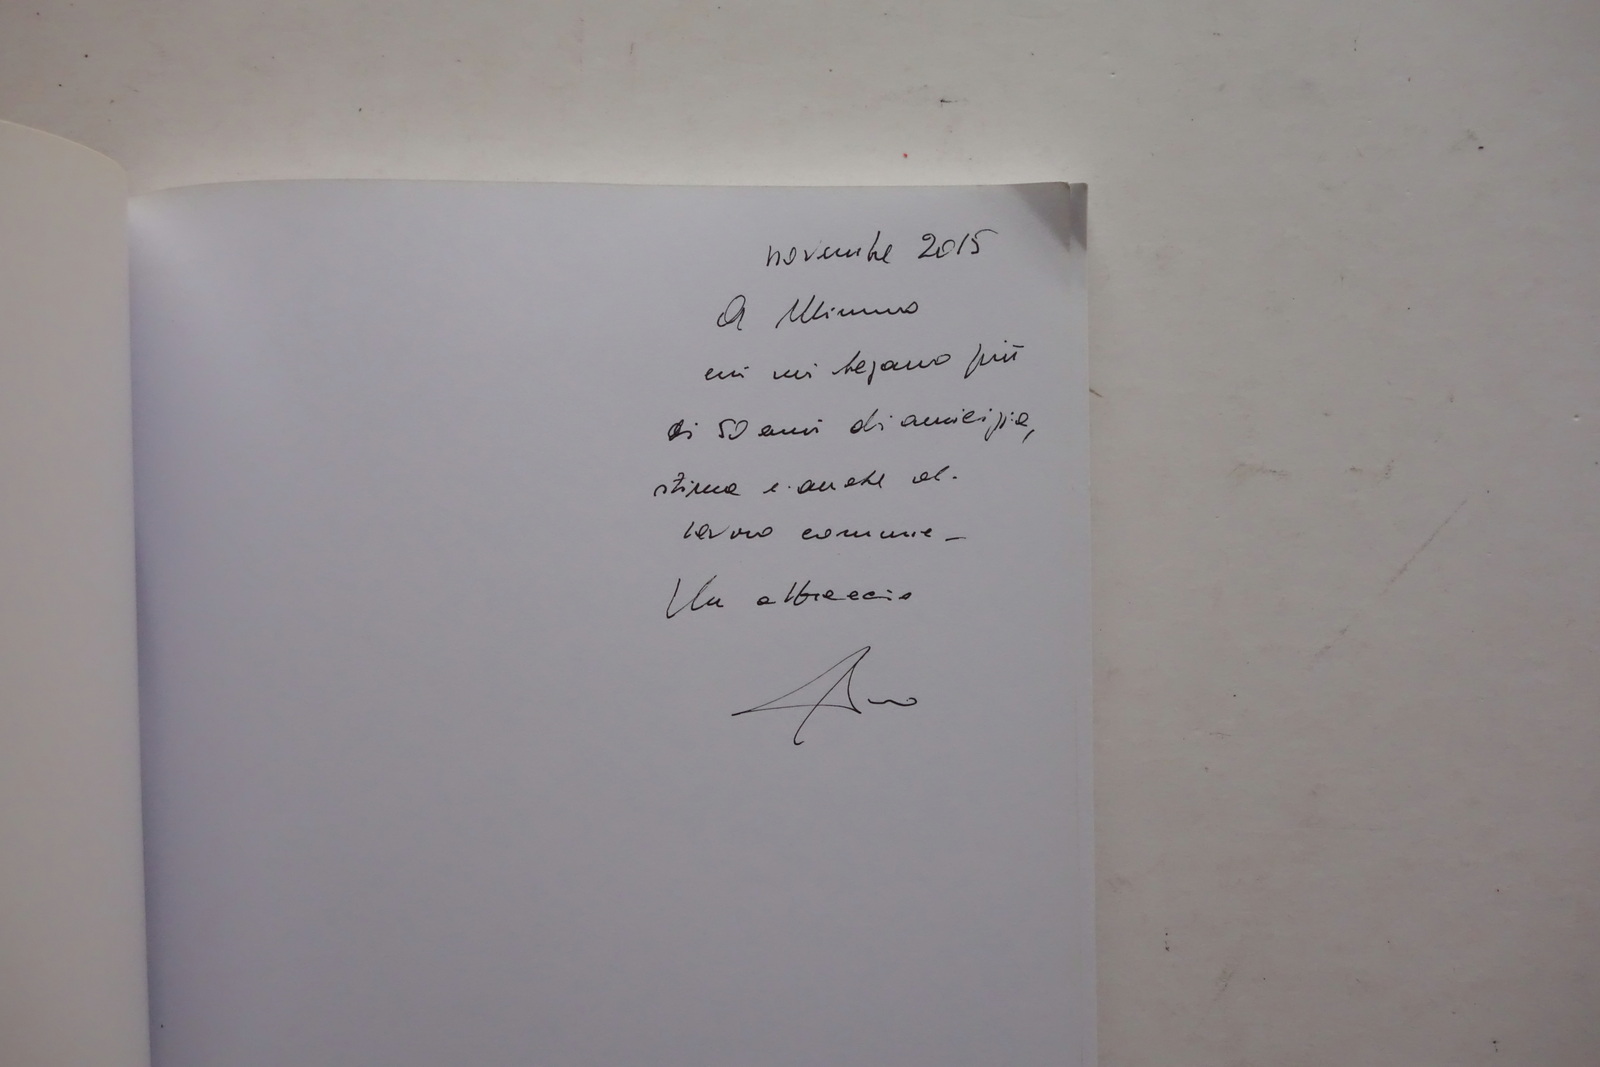 novembre 2015
A Mimmo
cui mi legano più
di 50 anni di amicizia,
stima e anche di
lavoro comune -
Un abbraccio